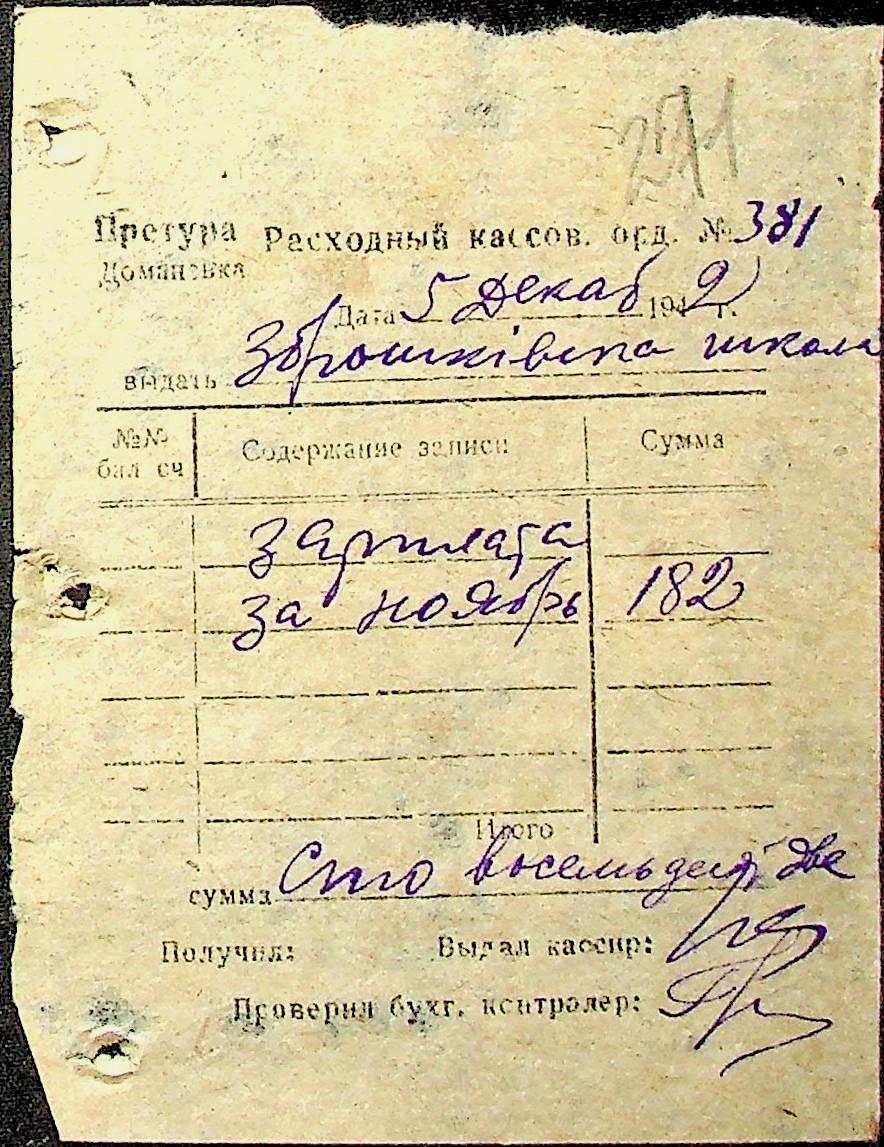 271
Претура Расходный кассов. орд. № 381
Доманевка
Дата 5 Декаб 1942 г.
выдать школа
№№ бал сч Содержание записи Сумма
Зарплата
за ноябрь 182
Итого
сумма Сто восемьдесят две
Получил: Выдал кассир:
Проверил бухг. контролер: